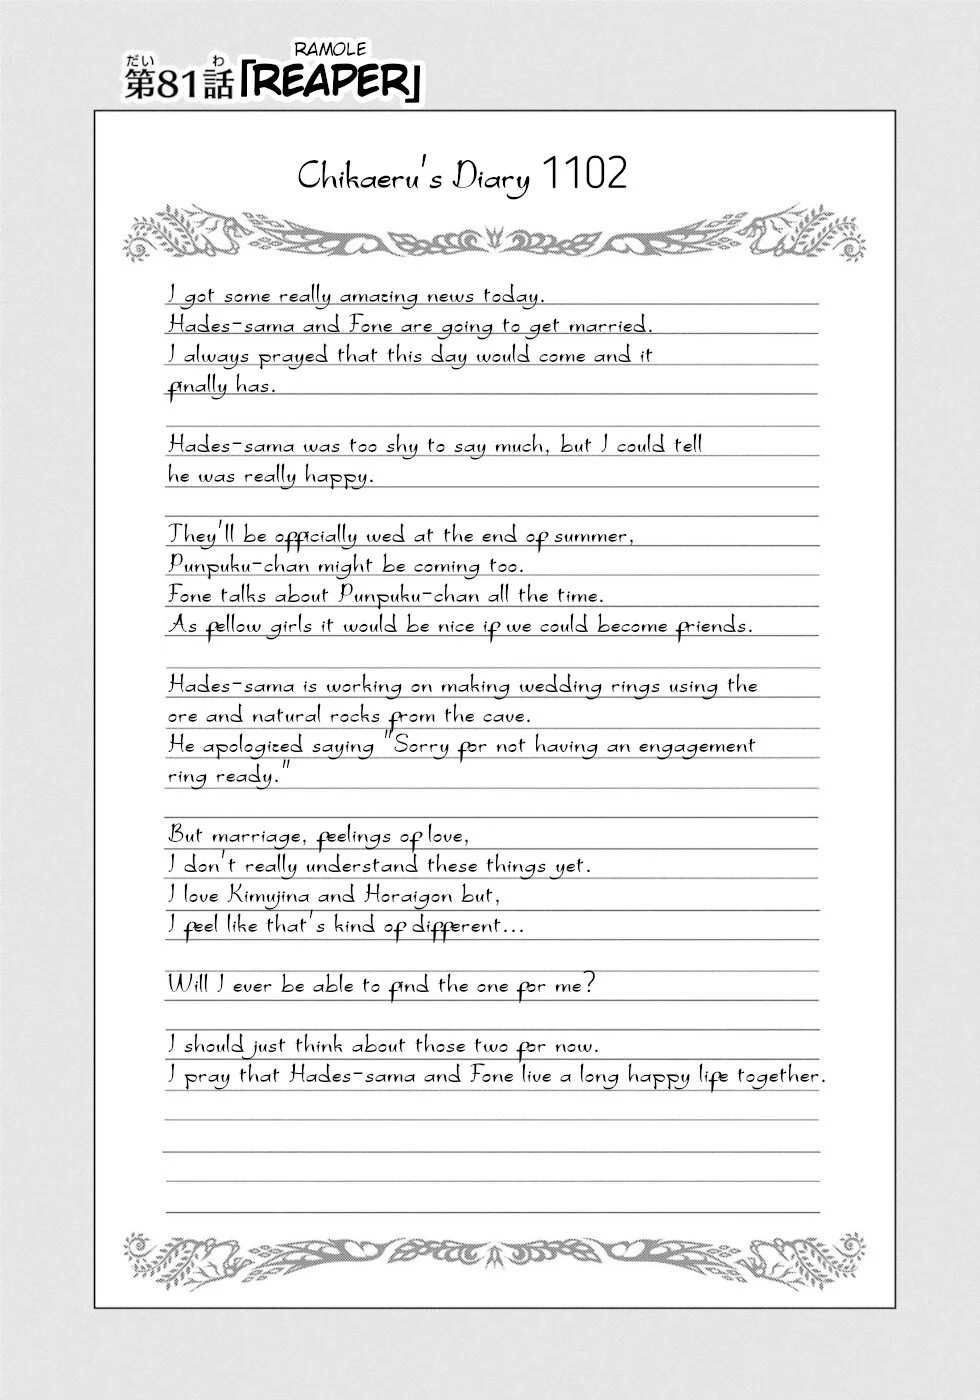 RAMOLE
だい わ
第81話「REAPER」
Chikaeru's Diary 1102
I got some really amazing news today.
Hades-sama and Fone are going to get married.
I always prayed that this day would come and it
finally has.
Hades-sama was too shy to say much, but I could tell
he was really happy.
They'll be officially wed at the end of summer,
Punpuku-chan might be coming too.
Fone talks about Punpuku-chan all the time.
As fellow girls it would be nice if we could become friends.
Hades-sama is working on making wedding rings using the
ore and natural rocks from the cave.
He apologized saying "Sorry for not having an engagement
ring ready."
But marriage, feelings of love,
I don't really understand these things yet.
I love Kimujina and Horaigon but,
I feel like that's kind of different...
Will I ever be able to find the one for me?
I should just think about those two for now.
I pray that Hades-sama and Fone live a long happy life together.